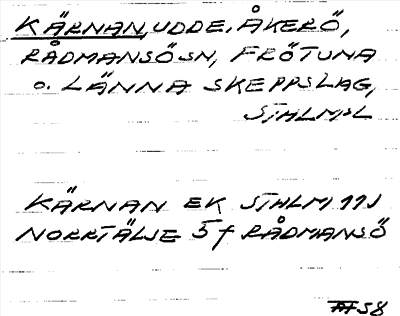 KÄRNAN, UDDE. ÅKERÖ,
RÅDMANSÖ SN, FRÖTUNA
O. LÄNNA SKEPPSLAG,
STHLMS L
KÄRNAN EK STHLM 11J
NORRTÄLJE 5f RÅDMANSÖ
58